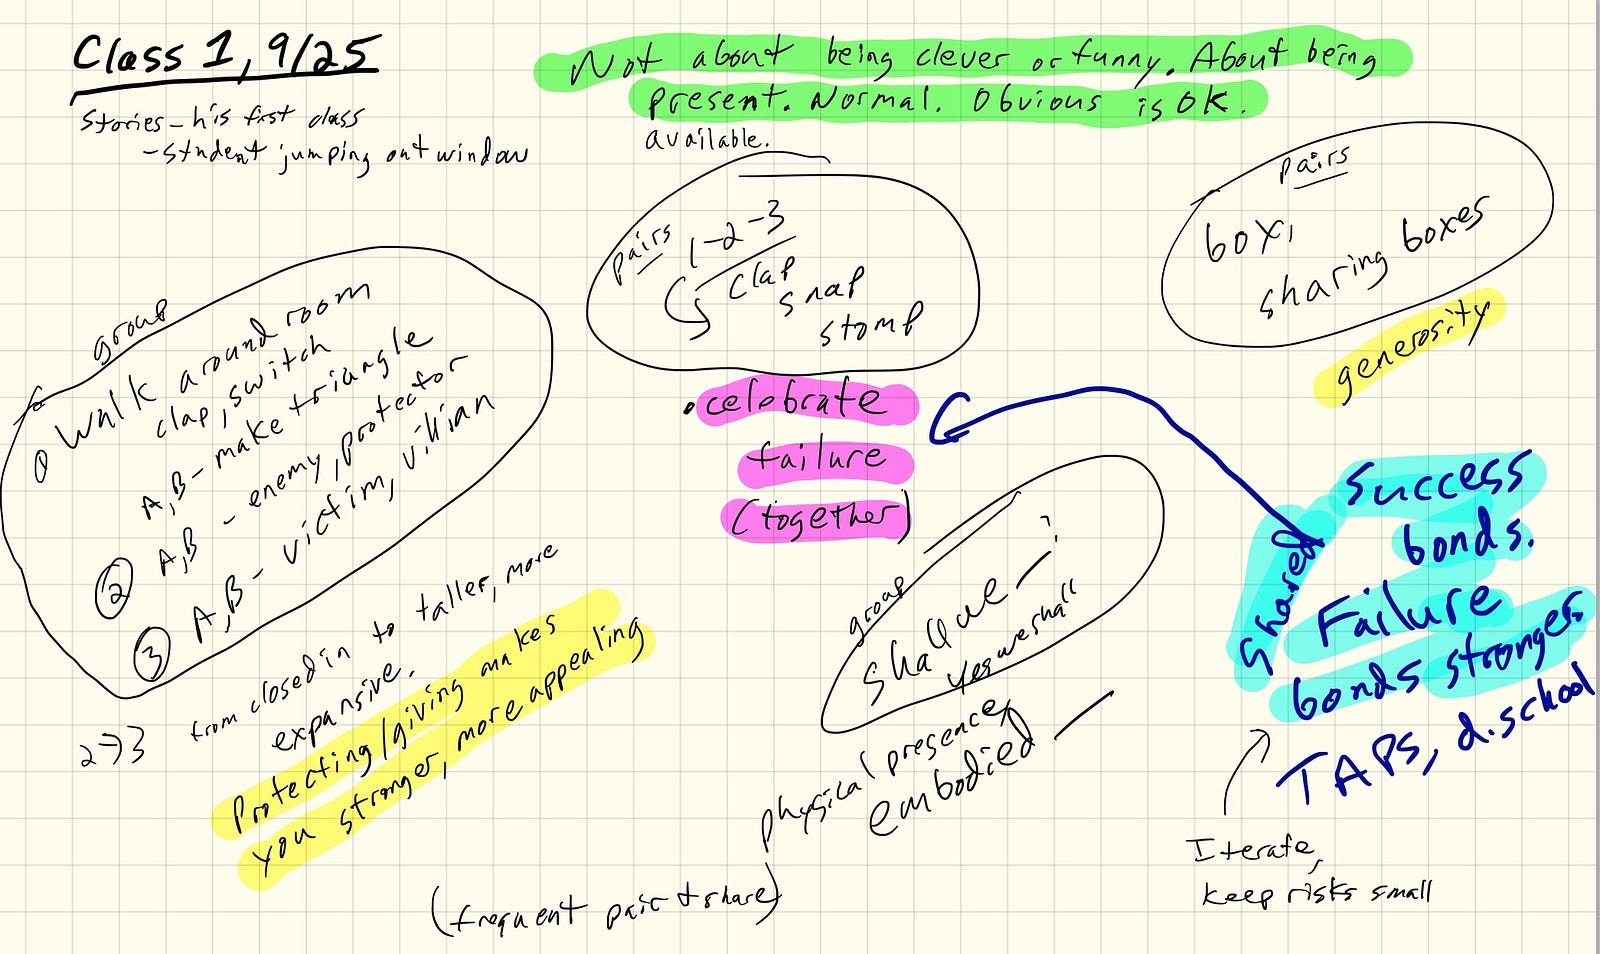 Class 1, 9/25
Stories - his first class
- student jumping out window
Not about being clever or funny. About being
present. Normal. Obvious is OK.
available.
group
① Walk around room
clap, switch
A,B - make triangle
② A,B - enemy, protector
③ A,B - victim, villian
2→3 from closed in to taller, more
expansive.
Protecting/giving makes
you stronger, more appealing
pairs
1-2-3
clap
snap
stomp
• celebrate
failure
(together)
pairs
box,
sharing boxes
generosity
group
shall we - ?
yes we shall
physical presence,
embodied -
(frequent pair + share)
Shared
Success
bonds.
Failure
bonds stronger.
TAPS, d.school
Iterate,
keep risks small